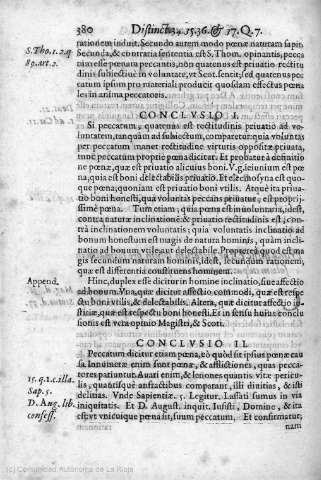 380 Distinct. 34. 35. 36. & 37. Q. 7.
S. Tho. 1. 2. q
87. art. 2.
rationem induit. Secundo autem modo pœnæ naturam sapit.
Secunda, & contraria sententia est S. Thom. opinantis, pecca
tum esse pœnam peccanti, non quatenus est priuatio rectitu
dinis subiectiue in voluntate, vt Scot. sentit, sed quatenus pec
catum ipsum pro materiali producit quosdam effectus pœna
les in anima peccatoris.
CONCLVSIO I.
Si peccatum, quatenus est rectitudinis priuatio ad vo-
luntatem, tanquam ad subiectum, comparetur: quia voluntas
per peccatum manet rectitudine virtutis opposita priuata,
tunc peccatum proprie pœna dicitur. Et probatur à definitio
ne pœnæ, quæ est priuatio alicuius boni. V.g. ieiunium est pœ
na, quia est boni delectabilis priuatio. Et eleemosyna est quo-
que pœna, quoniam est priuatio boni vtilis. Atqui ita priua-
tio boni honesti, qua voluntas peccans priuatur, est proprijs-
sime pœna. Tum etiam, quia pœna est inuoluntaria, idest,
contra naturæ inclinationē & priuatio rectitudinis est; con-
trà inclinationem voluntatis; quia voluntatis inclinatio ad
bonum honestum est magis de natura hominis, quàm incli-
natio ad bonum vtile, aut delectabile. Propterea quod est ma-
gis secundum naturam hominis, idest, secundum rationem,
quæ est differentia constituens hominem.
Append.
Hinc, duplex esse dicitur in homine inclinatio, siue affectio
ad bonum. Vna, quæ dicitur affectio commodi, quæ est respe-
ctu boni vtilis, & delectabilis. Altera, quæ dicitur affectio iu-
stitiæ, quæ est respectu boni honesti. Et in sensu huius conclu
sionis est vera opinio Magistri, & Scoti.
CONCLVSIO II.
Peccatum dicitur etiam pœna, eò quòd sit ipsius pœnæ cau
sa. Innumeræ enim sunt pœnæ, & afflictiones, quas pecca-
15. q. 1. c. illa.
Sap. 5.
D. Aug. lib.
confess.
tores patiuntur. Auari enim, & lenones quantis vitæ pericu-
lis, quantisque anfractibus comparant, illi diuitias, & isti
delitias. Vnde Sapientiæ. 5. Legitur, Lassati sumus in via
iniquitatis. Et D. August. inquit. Iussisti, Domine, & ita
est, vt vnicuique pœna sit, suum peccatum, Et confirmatur,
nam
(c) Comunidad Autónoma de La Rioja